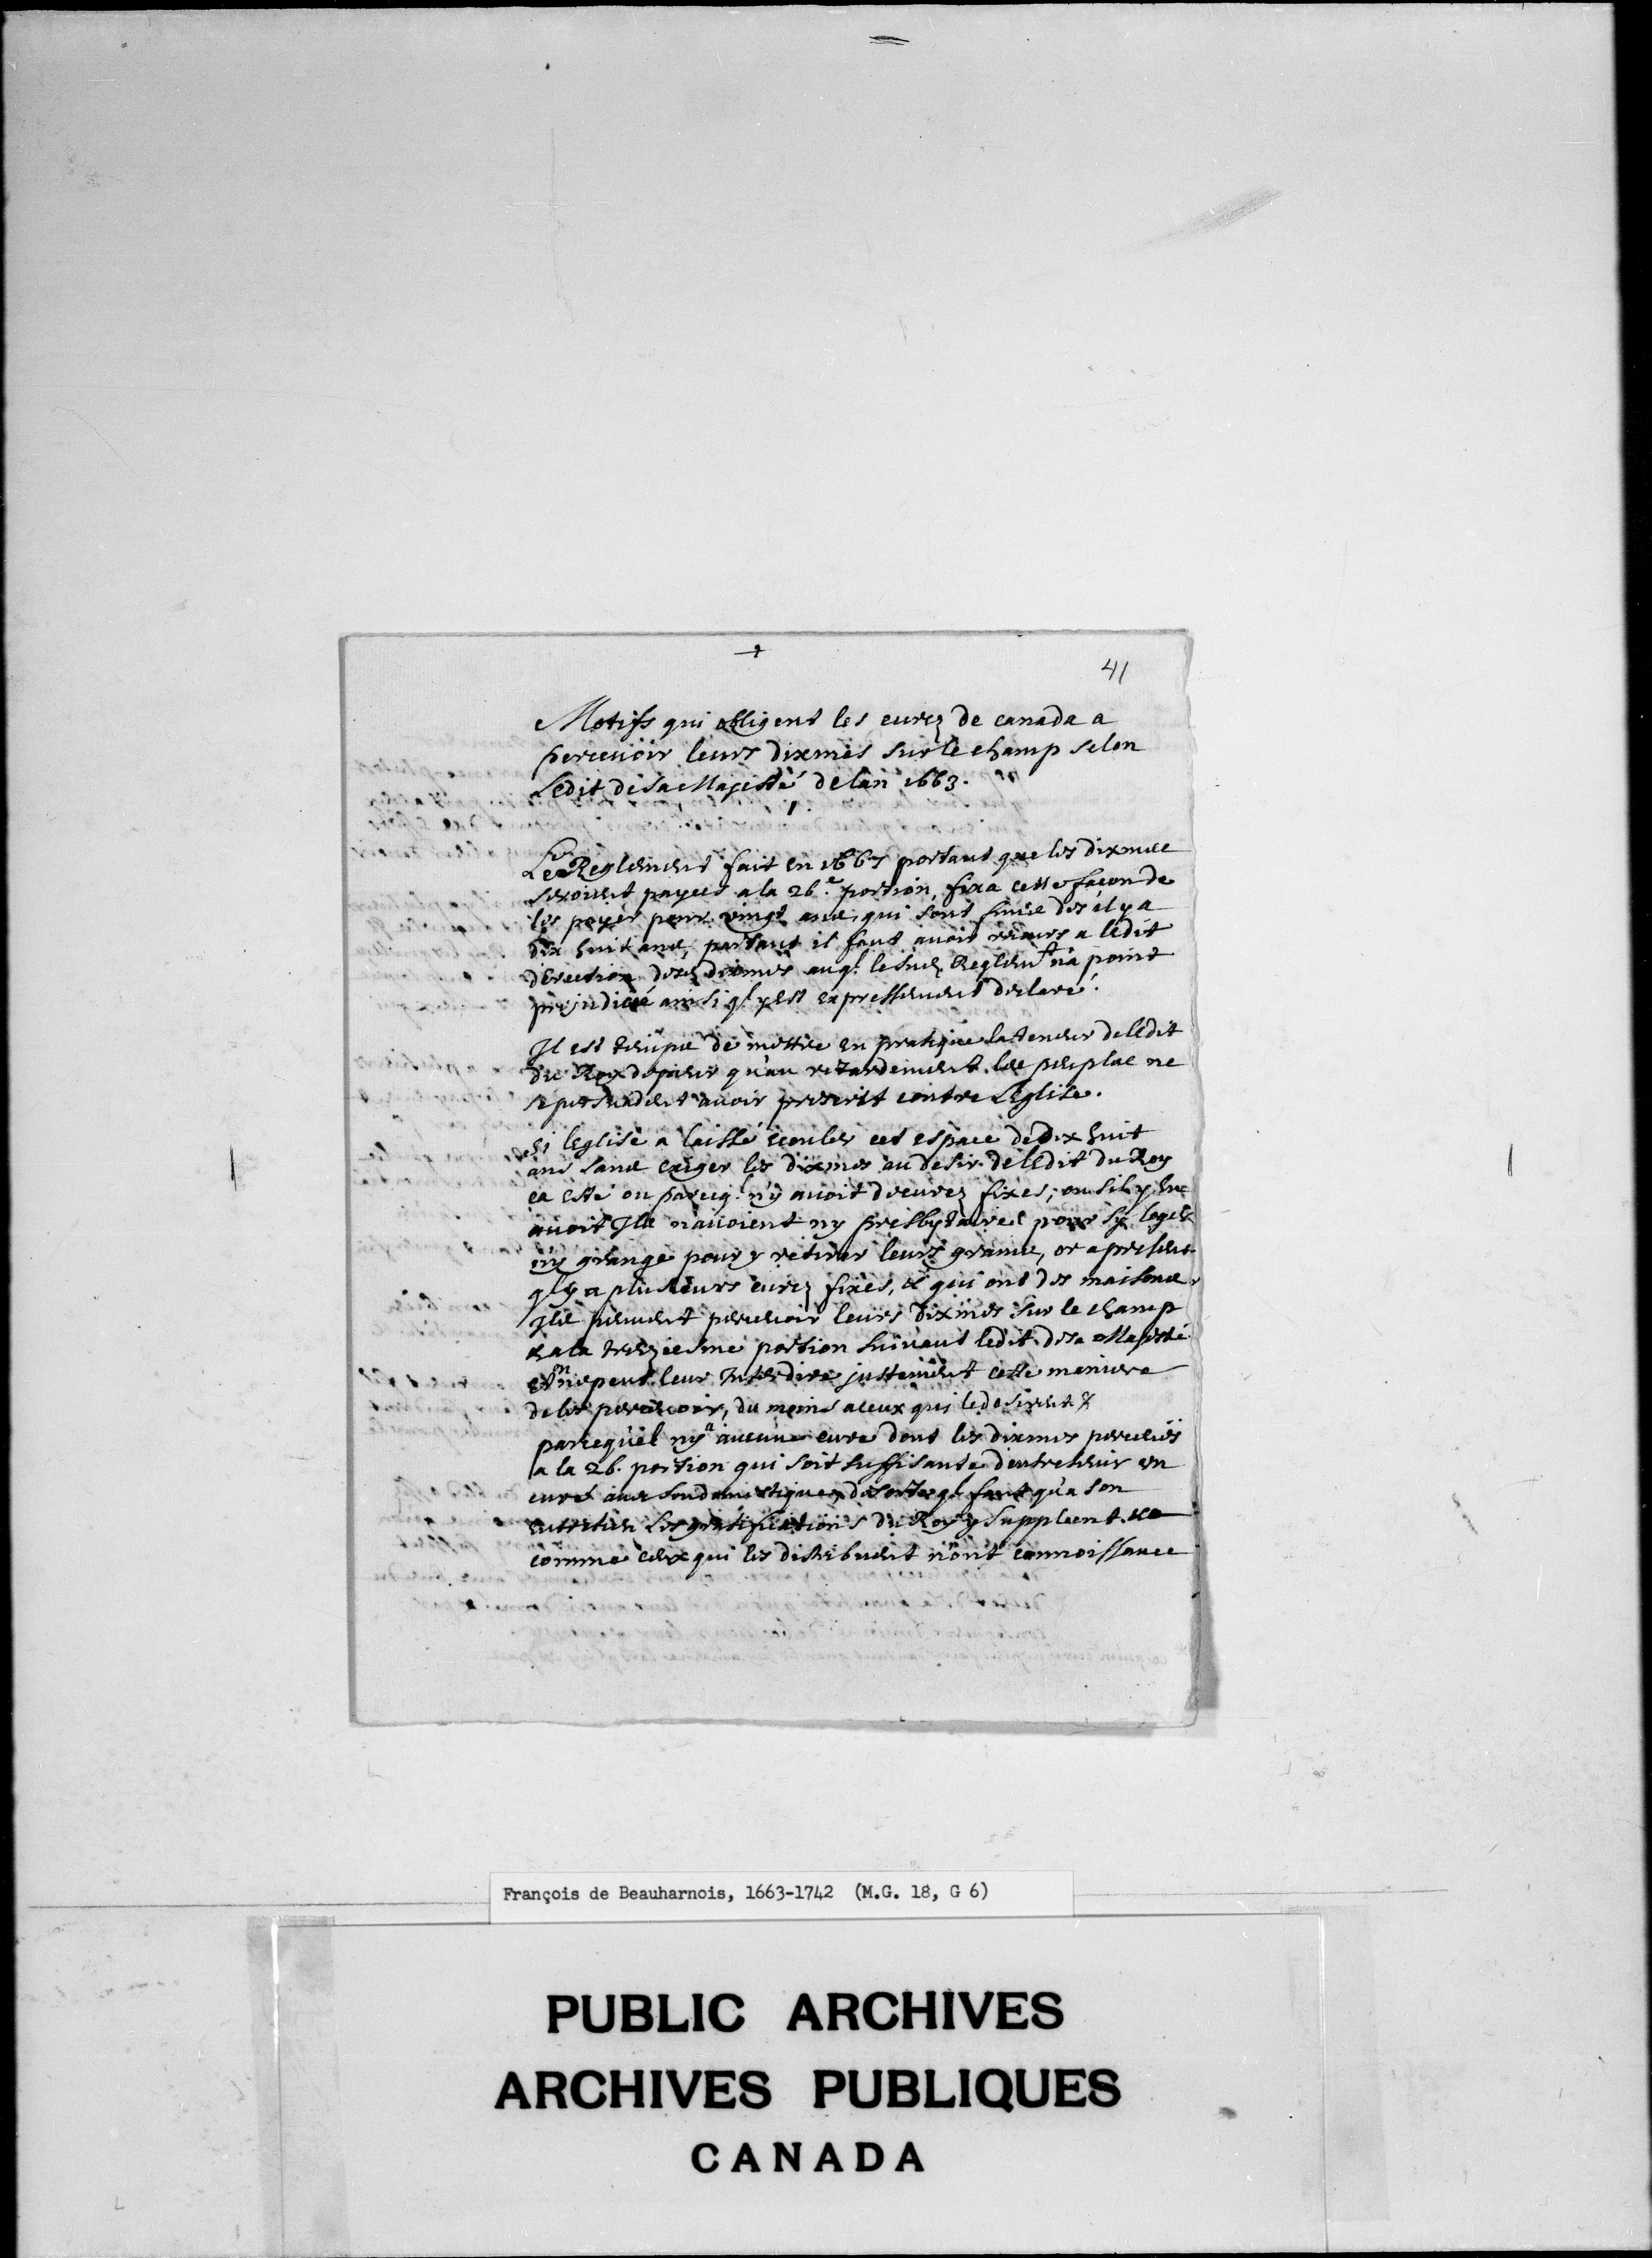 41
Motifs qui obligent les curez de canada a
percevoir leurs dixmes sur le champ selon
Ledit de sa Majesté de lan 1663.
1.
Le Reglement fait en 1667 portant que les dixmes
seroient payées a la 26.e portion, fixa cette façon de
les payer pour vingt ans, qui sont finis des il y a
dix huit ans, partant il faut avoir recours a lédit
dérection desd. dixmes auql. le susd. Reglemt n'a point
prejudicié ainsi ql. y est expressement declaré.
Il est temps de mettre en pratique la teneur de lédit
du Roy de peur qu'au retardement les peuples ne
se persuadent avoir prescrit contre Leglise.
Si leglise a laissé écouler cet espace de dix huit
ans sans exiger les dixmes au desir de lédit du Roy
ca esté ou parceq.l n'y avoit de curez fixes; ou sil y en
avoit Ils n'avoient ny presbytaires pour sy loger
ny grange pour y retirer leurs grains, or a present
ql y a plusieurs curez fixes, et qui ont des maisons
Ils peuvent percevoir leurs dixmes sur le champ
et a la treziesme portion suivant ledit de sa Majesté
et on ne peut leur Interdire justement cette maniere
de les percevoir, du moins a ceux qui le desirent &
parcequ'il ny a aucune cure dont les dixmes percües
a la 26. portion qui soit suffisante dentretenir un
curé avec son domestique, de sorte ql. faut qu'a son
entretien les gratifications du Roy y suppleent.
comme ceux qui les distribuent n'ont connoissance
François de Beauharnois, 1663-1742 (M.G. 18, G 6)
PUBLIC ARCHIVES
ARCHIVES PUBLIQUES
CANADA